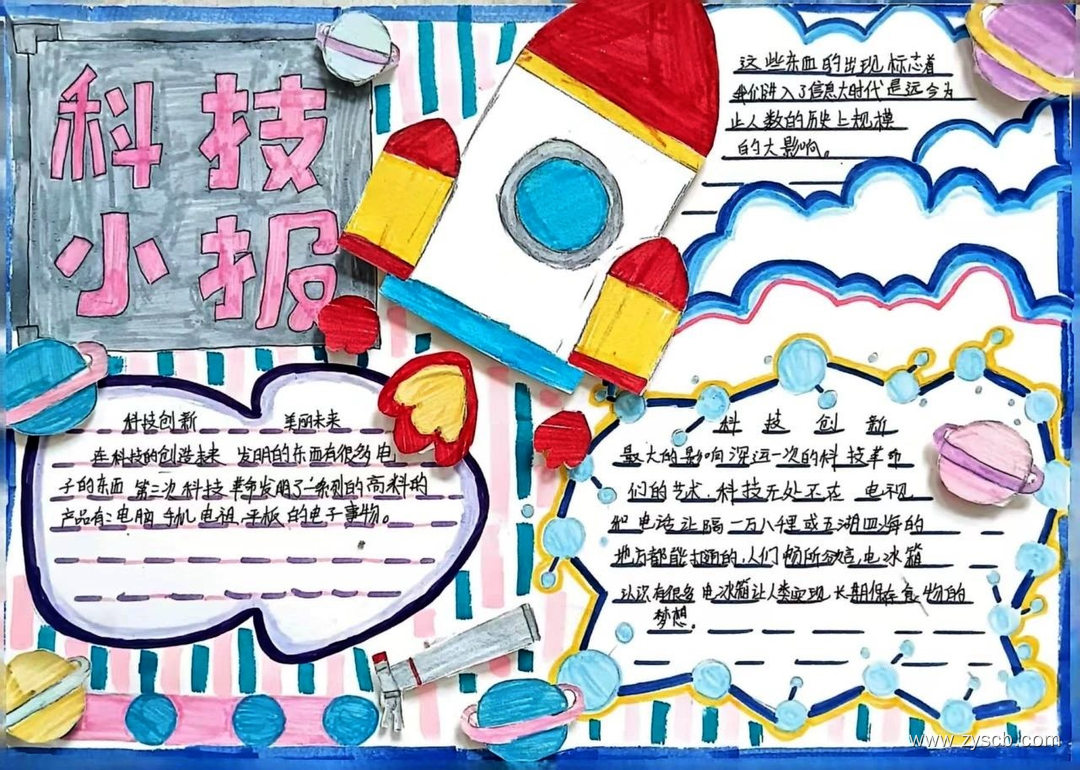 科技
小报
这些东西的出现标志着
我们进入了信息大时代是远今为
止人数的历史上规模
的大影响。
科技创新 美丽未来
在科技的创造未来 发明的东西有很多电
子的东西 第三次科技革命发明了一系列的高科的
产品有：电脑 手机 电视 平板 的电子事物。
科技创新
最大的影响深远一次的科技革命
们的艺术，科技无处不在 电视，
和电话让隔一万八千里或五湖四海的
地方都能打通的，人们畅所欲言，电冰箱
认识有很多 电冰箱让人类实现 长期保存食物的
梦想。
www.zyscb.com